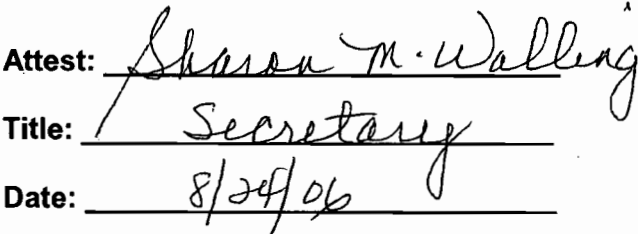 Attest: Sharon M. Walling
Title: Secretary
Date: 8/24/06